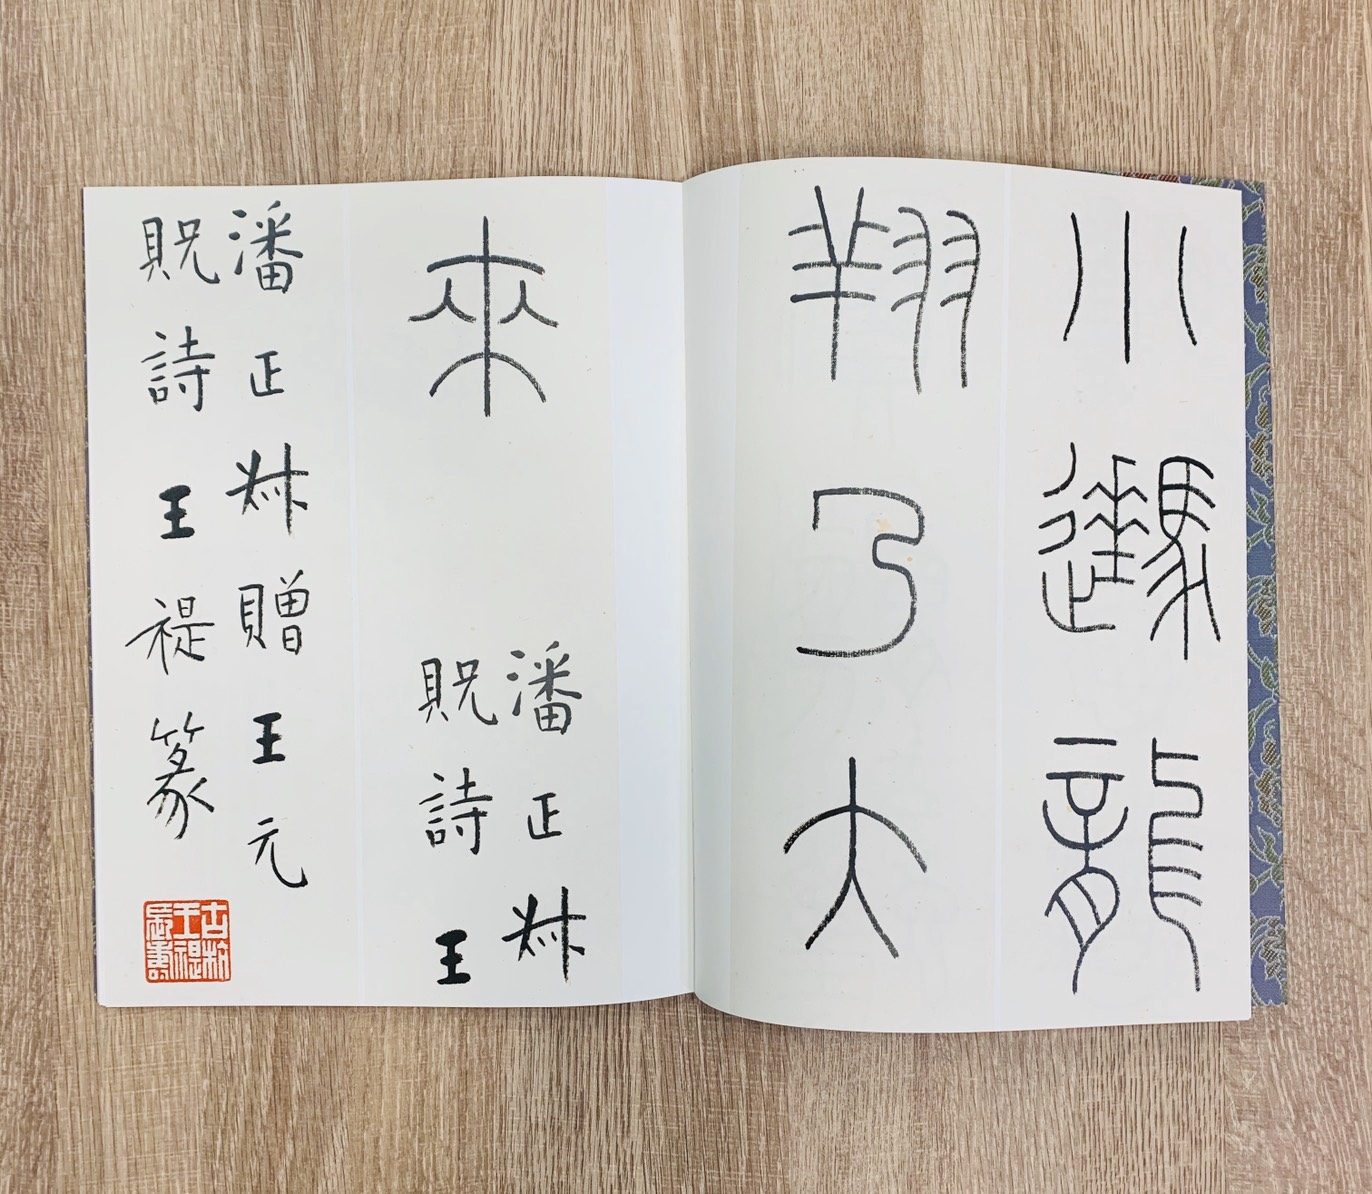 小龍
翔乃大
來
潘正叔
貺詩王
潘正叔贈王元
貺詩王禔篆
古杭
王禔
長壽